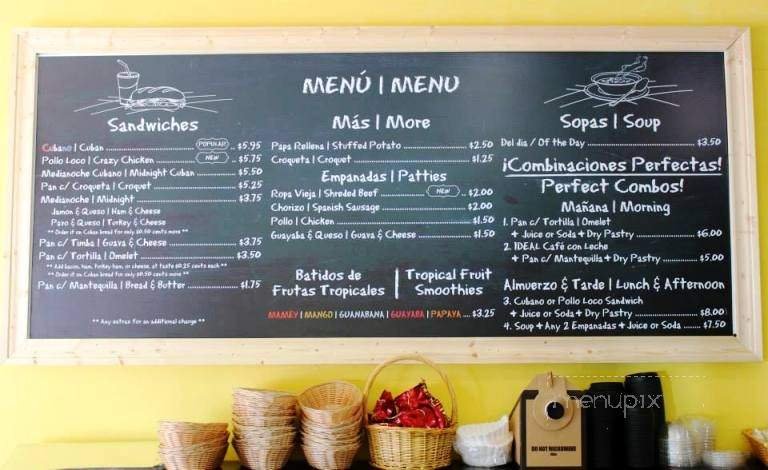 MENÚ | MENU
Sandwiches
Cubano | Cuban POPULAR $5.95
Pollo Loco | Crazy Chicken NEW $5.75
Medianoche Cubano | Midnight Cuban $5.50
Pan c/ Croqueta | Croquet $5.25
Medianoche | Midnight $3.75
Jamon & Queso | Ham & Cheese
Pavo & Queso | Turkey & Cheese
** Order it on Cuban bread for only $0.50 cents more **
Pan c/ Timba | Guava & Cheese $3.75
Pan c/ Tortilla | Omelet $3.50
** Add bacon, ham, turkey ham, or cheese, at taste $0.25 cents each **
** Order it on Cuban bread for only $0.50 cents more **
Pan c/ Mantequilla | Bread & Butter $1.75
** Any extras for an additional change **
Más | More
Papa Rellena | Stuffed Potato $2.50
Croqueta | Croquet $1.25
Empanadas | Patties
Ropa Vieja | Shreded Beef NEW $2.00
Chorizo | Spanish Sausage $2.00
Pollo | Chicken $1.50
Guayaba & Queso | Guava & Cheese $1.50
Batidos de Frutas Tropicales | Tropical Fruit Smoothies
MAMEY | MANGO | GUANABANA | GUAYABA | PAPAYA $3.25
Sopas | Soup
Del dia / Of the Day $3.50
¡Combinaciones Perfectas!
Perfect Combos!
Mañana | Morning
1. Pan c/ Tortilla | Omelet
+ Juice or Soda + Dry Pastry $6.00
2. IDEAL Café con Leche
+ Pan c/ Mantequilla + Dry Pastry $5.00
Almuerzo & Tarde | Lunch & Afternoon
3. Cubano or Pollo Loco Sandwich
+ Juice or Soda + Dry Pastry $8.00
4. Soup + Any 2 Empanadas + Juice or Soda $7.50
DO NOT MICROWAVE
menupix